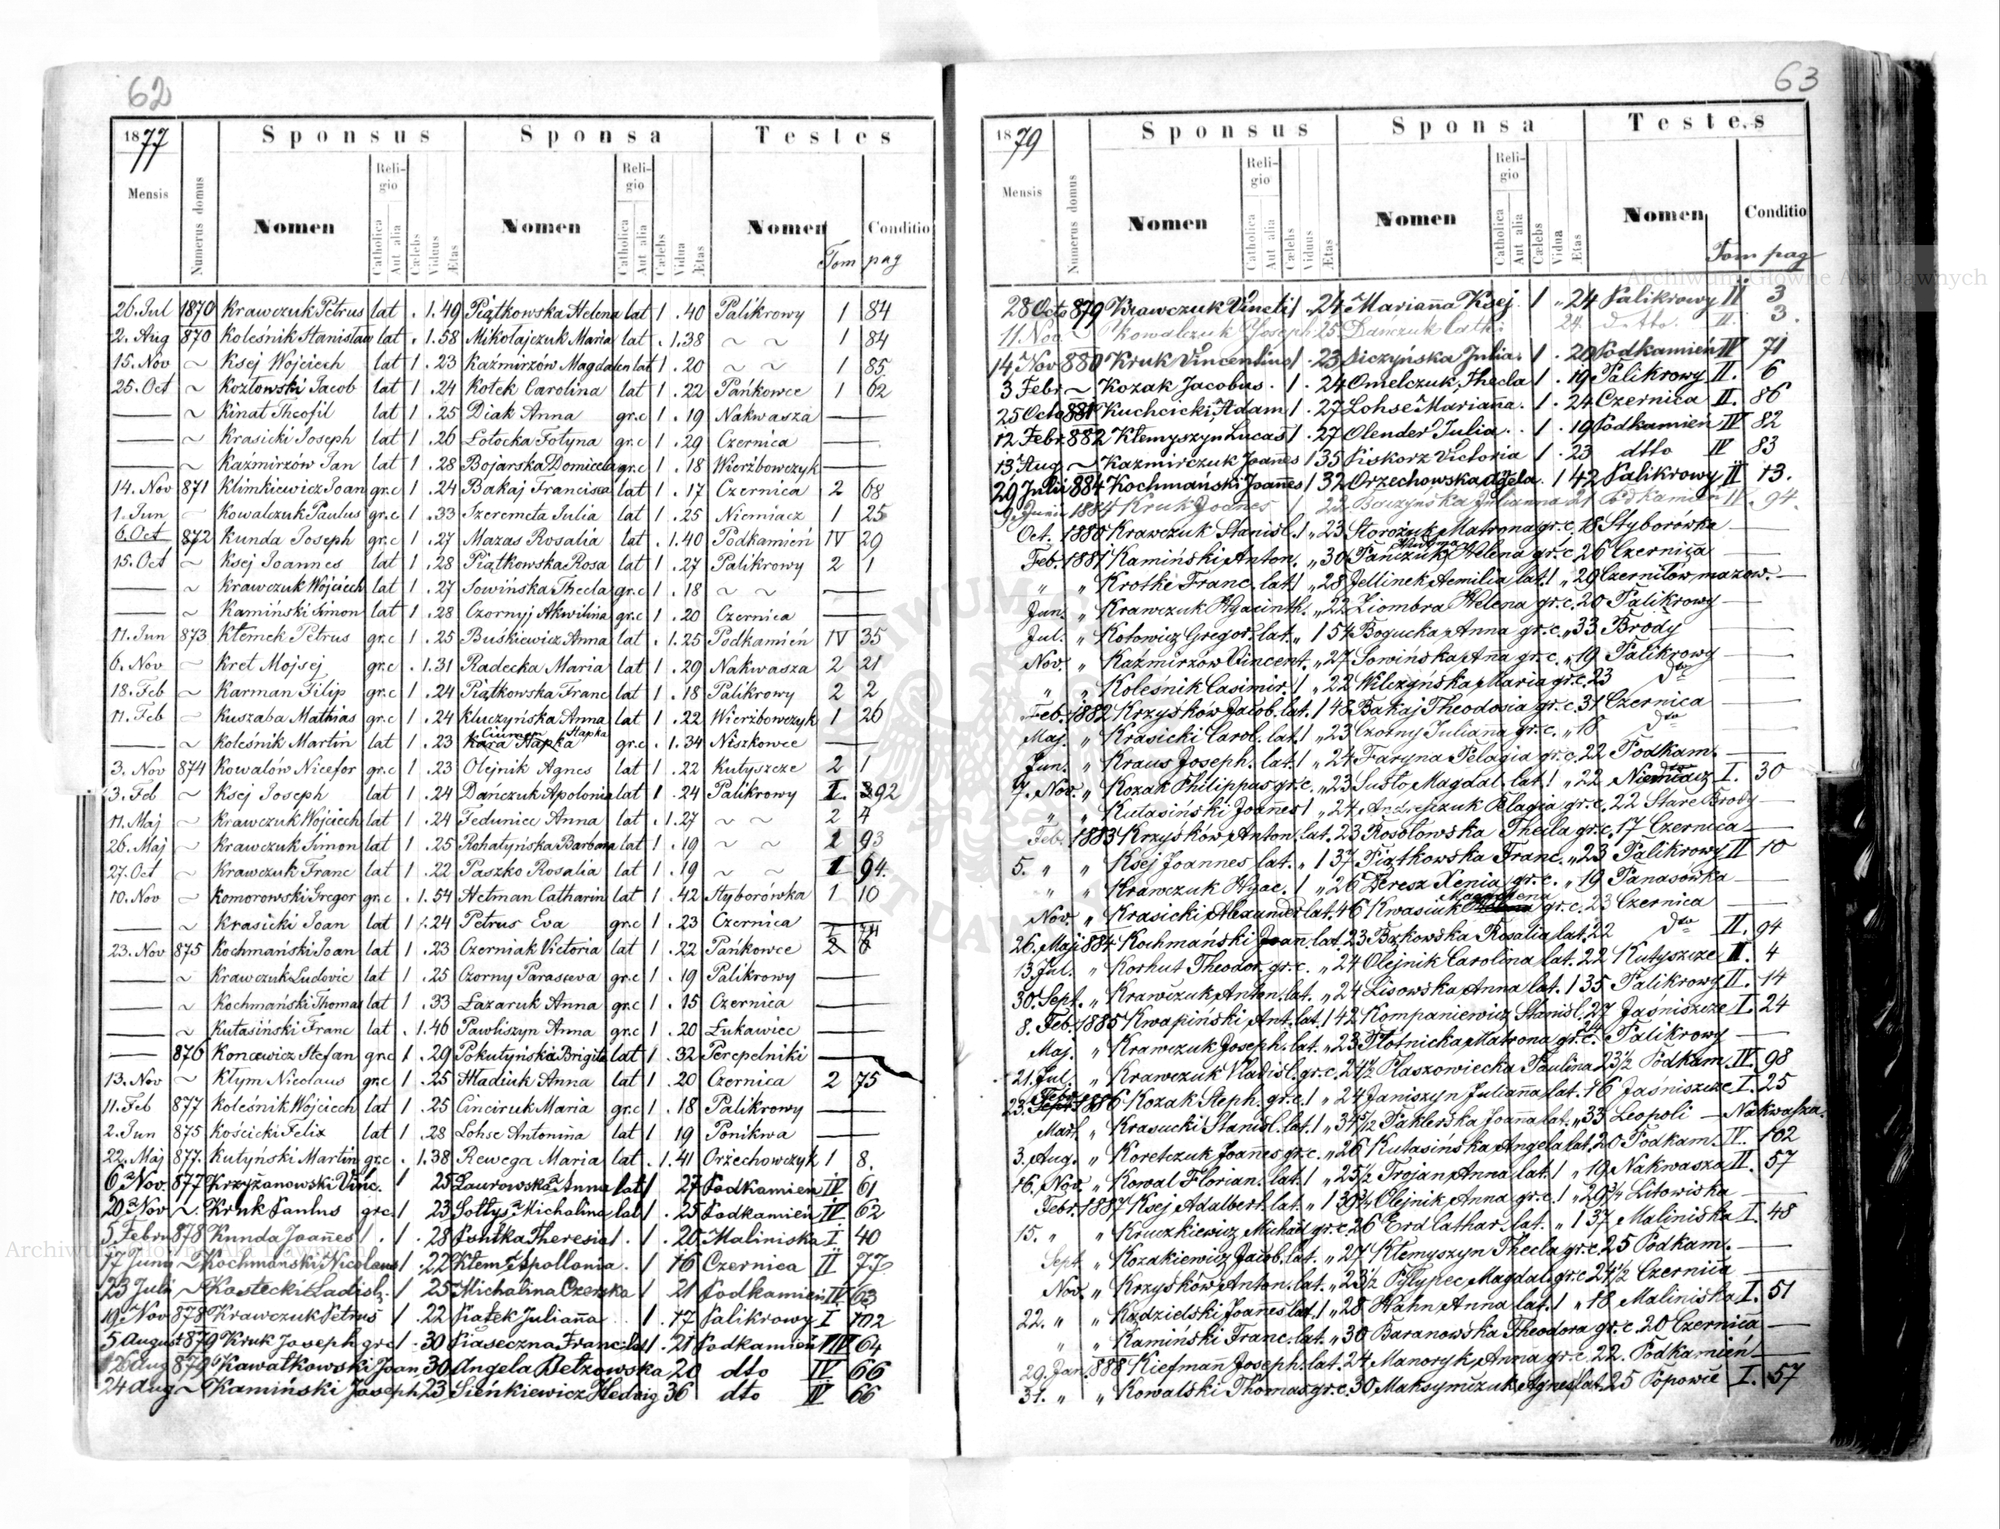 62
1877
Sponsus Sponsa Testes
Mensis Numerus domus Nomen Religio Catholica Aut alia Cælebs Viduus Ætas Nomen Religio Catholica Aut alia Cælebs Vidua Ætas Nomen Conditio
Tom pag
26. Jul 1870 Krawczuk Petrus lat . 1. 49 Piątkowska Helena lat 1 . 40 Palikrowy 1 84
2. Aug 870 Koleśnik Stanisław lat . 1. 58 Mikołajczuk Maria lat . 1. 38 ~ ~ 1 84
15. Nov ~ Ksej Wojciech lat 1 . 23 Kaźmirzów Magdalen lat 1 . 20 ~ ~ 1 85
25. Oct ~ Kozłowski Jacob lat 1 . 24 Kotek Carolina lat 1 . 22 Pańkowce 1 62
— ~ Kinat Theofil lat 1 . 25 Diak Anna gr.c 1 . 19 Nakwasza —
— ~ Krasicki Joseph lat 1 . 26 Łotocka Fotyna gr.c 1 . 29 Czernica —
— ~ Kaźmirzów Jan lat 1 . 28 Bojarska Domicela gr.c 1 . 18 Wierzbowczyk —
14. Nov 871 Klimkiewicz Joan gr.c 1 . 24 Bakaj Francisca lat 1 . 17 Czernica 2 68
1. Jun ~ Kowalczuk Paulus gr.c 1 . 33 Szeremeta Julia lat 1 . 25 Niemiacz 1 25
6. Oct 872 Kunda Joseph gr.c 1 . 27 Mazas Rosalia lat . 1. 40 Podkamień IV 29
15. Oct ~ Ksej Joannes lat 1 . 28 Piątkowska Rosa lat 1 . 27 Palikrowy 2 1
~ Krawczuk Wojciech lat 1 . 27 Sowińska Thecla gr.c 1 . 18 ~ ~ —
— ~ Kamiński Simon lat 1 . 28 Czornyj Akwilina gr.c 1 . 20 Czernica —
11. Jun 873 Kłemek Petrus gr.c 1 . 25 Buśkiewicz Anna lat . 1. 25 Podkamień IV 35
6. Nov ~ Kret Mojsej gr.c . 1. 31 Radecka Maria lat 1 . 29 Nakwasza 2 21
18. Feb ~ Karman Filip gr.c 1 . 24 Piątkowska Franc lat 1 . 18 Palikrowy 2 2
11. Feb ~ Kuszaba Mathias gr.c 1 . 24 Kluczyńska Anna lat 1 . 22 Wierzbowczyk 1 26
— ~ Koleśnik Martin lat 1 . 23 Kara Hapka gr.c . 1. 34 Niszkowce —
3. Nov 874 Kowalów Nicefor gr.c 1 . 23 Olejnik Agnes lat 1 . 22 Kutyszcze 2 1
3. Feb ~ Ksej Joseph lat 1 . 24 Dańczuk Apolonia lat 1 . 24 Palikrowy I. 92
11. Maj ~ Krawczuk Wojciech lat 1 . 24 Fedunicc Anna lat . 1. 27 ~ ~ 2 4
26. Maj ~ Krawczuk Simon lat 1 . 25 Rohatyńska Barbara lat 1 . 19 ~ ~ 2 93
27. Oct ~ Krawczuk Franc lat 1 . 22 Paszko Rosalia lat 1 . 19 ~ ~ 1 94.
10. Nov ~ Komorowski Gregor gr.c . 1. 54 Hetman Catharin lat 1 . 42 Styborówka 1 10
~ Krasicki Joan lat 1 . 24 Petrus Eva gr.c 1 . 23 Czernica —
23. Nov 875 Kochmański Joan lat 1 . 23 Czerniak Victoria lat 1 . 22 Pańkowce
— ~ Krawczuk Ludovic lat 1 . 25 Czorny Parascewa gr.c 1 . 19 Palikrowy —
— ~ Kochmański Thomas lat 1 . 33 Łazaruk Anna gr.c 1 . 15 Czernica —
— ~ Kutasiński Franc lat . 1. 46 Pawliszyn Anna gr.c 1 . 20 Łukawiec —
— 876 Koncewicz Stefan gr.c 1 . 29 Pokutyńska Brigita lat 1 . 32 Perepelniki —
13. Nov ~ Kłym Nicolaus gr.c 1 . 25 Hładiuk Anna lat 1 . 20 Czernica 2 75
11. Feb 877 Koleśnik Wojciech lat 1 . 25 Cinciruk Maria gr.c 1 . 18 Palikrowy —
2. Jun 875 Kościcki Felix lat 1 . 28 Lohse Antonina lat 1 19 Ponikwa —
22. Maj 877. Kutyński Martin gr.c . 1. 38 Rewega Maria lat . 1. 41 Orzechowczyk 1 8.
6 Nov. 877 Krzyżanowski Vinc. 1 25 Laurowska Anna lat 1 27 Podkamień IV 61
20 Nov ~ Kruk Paulus gr.c 1 23 Sołtys Michalina lat 1 . 25 Podkamień IV 62
5 Febru 878 Kunda Joannes 1 . 28 Theresia 1 . 20 Maliniska I. 40
17 Juni ~ Kochmański Nicolaus 1 . 22 Kłem Apollonia . 1 16 Czernica II 77
23 Julii ~ Kostecki Ladisl. 1 25 Michalina Czerska 1 21 Podkamień IV 63
19 Nov 878 Krawczuk Petrus 1 . 22 Piątek Julianna 1 . 17 Palikrowy I 102
5 August 879 Kruk Joseph gr.c 1 . 30 Piaseczna Franc. lat 1 . 21 Podkamień IV 64
12 Aug 879 Kawałkowski Joan 30 Angela Betzowska 20 dto IV 66
24 Aug ~ Kamiński Joseph 23 Sienkiewicz Hedwig 36 dto IV 66
63
1879
Sponsus Sponsa Testes
Mensis Numerus domus Nomen Religio Catholica Aut alia Cælebs Viduus Ætas Nomen Religio Catholica Aut alia Cælebs Vidua Ætas Nomen Conditio
Tom pag
28 Octo 879 Krawczuk Vincti 1 . 24 Marianna Ksej. 1 . 24 Palikrowy II 3
11 Nov. Kowalczuk Joseph 25 Danczuk Cath. 24. detto. II. 3.
14 Nov 880 Kruk Vincentius 1 . 23 Julia. 1 . 20 Podkamień IV 71
3 Febr ~ Kozak Jacobus. 1 . 24 Omelczuk Thecla 1 . 19 Palikrowy II. 6
25 Octo 881 Kuchcicki Adam 1 . 27 Lohse Marianna. 1 . 24 Czernica II. 86
12 Febr 882 Kłemyszyn Lucas 1 . 27 Olender Julia. . 1 . 19 Podkamień IV 82
13 Aug ~ Kaźmirczuk Joannes 1 35 Piskorz Victoria 1 . 23 dtto IV 83
29 Julii 884 Kochmański Joannes 1 32 Orzechowska 1 42 Palikrowy II 13.
1884 Kruk Joannes 1 22 Julianna 21 Podkamień IV. 94.
Oct. 1880 Krawczuk Stanisl. 1 „ 23 Storożuk Matrona gr.c. 18 Styborówka —
Feb. 1881 Kamiński Anton. „ 30 Pańczuk Helena gr.c. 26 Czernica —
„ „ Krotki Franc. lat. 1 „ 28 Jellinek Aemilia lat. 1 „ 29 Czerniłów mazow. —
Jan. „ Krawczuk Hyacinth. „ 22 Ziombra Helena gr.c. 20 Palikrowy —
Jul. „ Kotowicz Gregor. lat. „ 1 54 Bogucka Anna gr.c. „ 33 Brody —
Nov. „ Kaźmirzów Vincent. „ 27 Sowińska Anna gr.c. „ 19 Palikrowy —
„ „ Koleśnik Casimir. 1 „ 22 Wilczyńska Maria gr.c. 23 dto —
Feb. 1882 Krzysków Jacob. lat. 1 48 Bakaj Theodosia gr.c. 31 Czernica —
Maj. „ Krasicki Carol. lat. 1 „ 23 Czorny Julianna gr.c. „ 18 dto —
Jun. „ Kraus Joseph. lat. 1 „ 24 Faryna Pelagia gr.c. 22 Podkam. —
7. Nov. „ Kozak Philippus gr.c. „ 23 Susło Magdal. lat. 1 „ 22 Niemiacz I. 30
„ „ Kutasiński Joannes 1 „ 24 Pelagia gr.c. 22 Stare Brody —
Feb. 1883 Krzysków Anton. lat. 23 Kosołowska Thecla gr.c. 17 Czernica —
5. „ „ Ksej Joannes lat. „ 1 37 Piątkowska Franc. „ 23 Palikrowy II 10
„ „ Krawczuk Hyac. 1 „ 26 Deresz Xenia gr.c. „ 19 Panasówka —
Nov. „ Krasicki Alexander lat. 46 Kwasiuk Magdalena gr.c. 23 Czernica —
26. Maj 1884 Kochmański Joan. lat. 23 Bzkowska Rosalia lat. 22 dto II. 94
13. Jul. „ Korhut Theodor. gr.c. „ 24 Olejnik Carolina lat. 22 Kutyszcze II. 4
30. Sept. „ Krawczuk Anton. lat. „ 24 Lisowska Anna lat. 1 35 Palikrowy II. 14
8. Feb. 1885 Kwapiński Ant. lat. 1 42 Kompaniewicz Stanisl. 27 Jaśniszcze I. 24
Maj. „ Krawczuk Joseph. lat. „ 23 Płotnicka Matrona gr.c. 24 Palikrowy —
21. Jul. „ Krawczuk Vladisl. gr.c. 24½ Płaszowiecka Paulina 23½ Podkam. IV. 98
23. Febr. 1886 Kozak Steph. gr.c. 1 „ 24 Janiszyn Julianna lat. 16 Jaśniszcze I. 25
Mart. „ Krasucki Stanisl. lat. 1 „ 34 Joanna lat. „ 33 Leopoli — Nakwasza.
3. Aug. „ Koretczuk Joannes gr.c. „ 26 Kutasińska Angela lat. 20 Podkam. IV. 102
16. Nov. „ Kowal Florian. lat. 1 „ 25½ Trojan Anna lat. 1 „ 19 Nakwasza II. 57
Febr. 1887 Ksej Adalbert. lat. 1 Olejnik Anna gr.c. 1 Litowiska —
15. „ „ Kruczkiewicz Michael gr.c. 26 Erd Cathar. lat. „ 1 37 Maliniska I. 48
Sept. „ Kozakiewicz Jacob. lat. „ 27 Kłemyszyn Thecla gr.c. 25 Podkam. —
Nov. „ Krzysków Anton. lat. „ 23½ Pyłypec Magdal. gr.c. 24½ Czernica —
22. „ „ Kądzielski Joannes lat. 1 „ 28 Hahn Anna lat. 1 „ 18 Maliniska I. 51
„ „ Kamiński Franc. lat. „ 30 Baranowska Theodora gr.c. 20 Czernica —
29. Jan. 1888 Kiefman Joseph. lat. 24 Manoryk Anna gr.c. 22. Podkamień —
31. „ „ Kowalski Thomas gr.c. 30 Maksymczuk Agnes lat. 25 Popowce I. 57
Archiwum Główne Akt Dawnych
Archiwum Główne Akt Dawnych